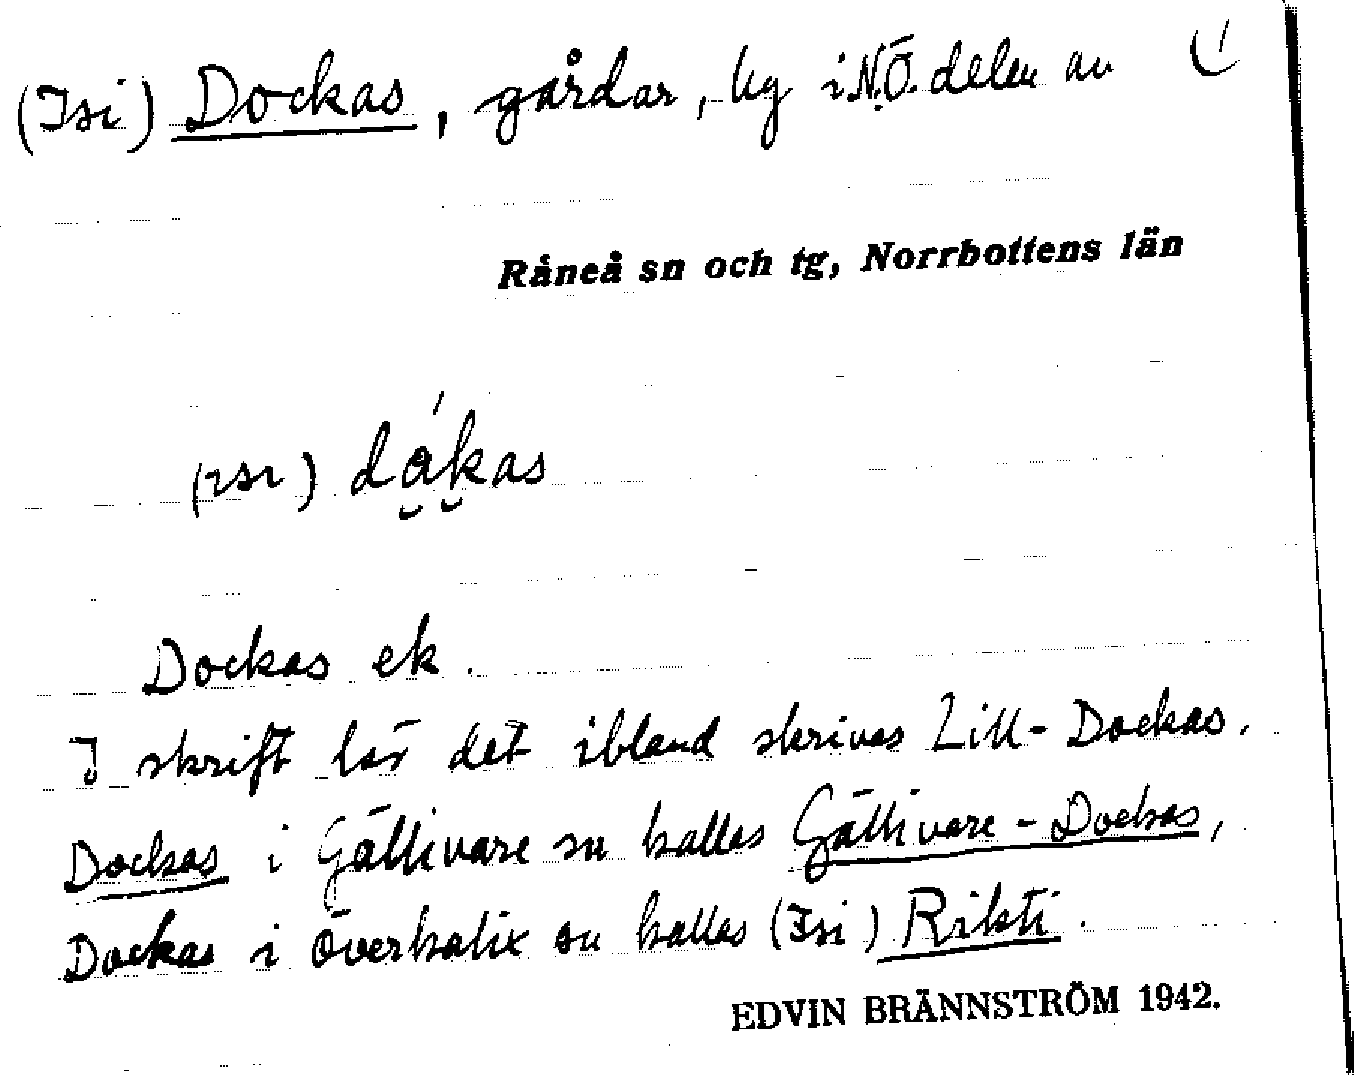 (Isi) Dockas, gårdar, lig i N.Ö. delen av
Råneå sn och tg, Norrbottens län
(ɪsɪ) dákas
Dockas ek.
I skrift lär det ibland skrivas Lill-Dockas.
Dockas i Gällivare sn kallas Gällivare-Dockas,
Dockas i Överkalix sn kallas (Isi) Rikti.
EDVIN BRÄNNSTRÖM 1942.